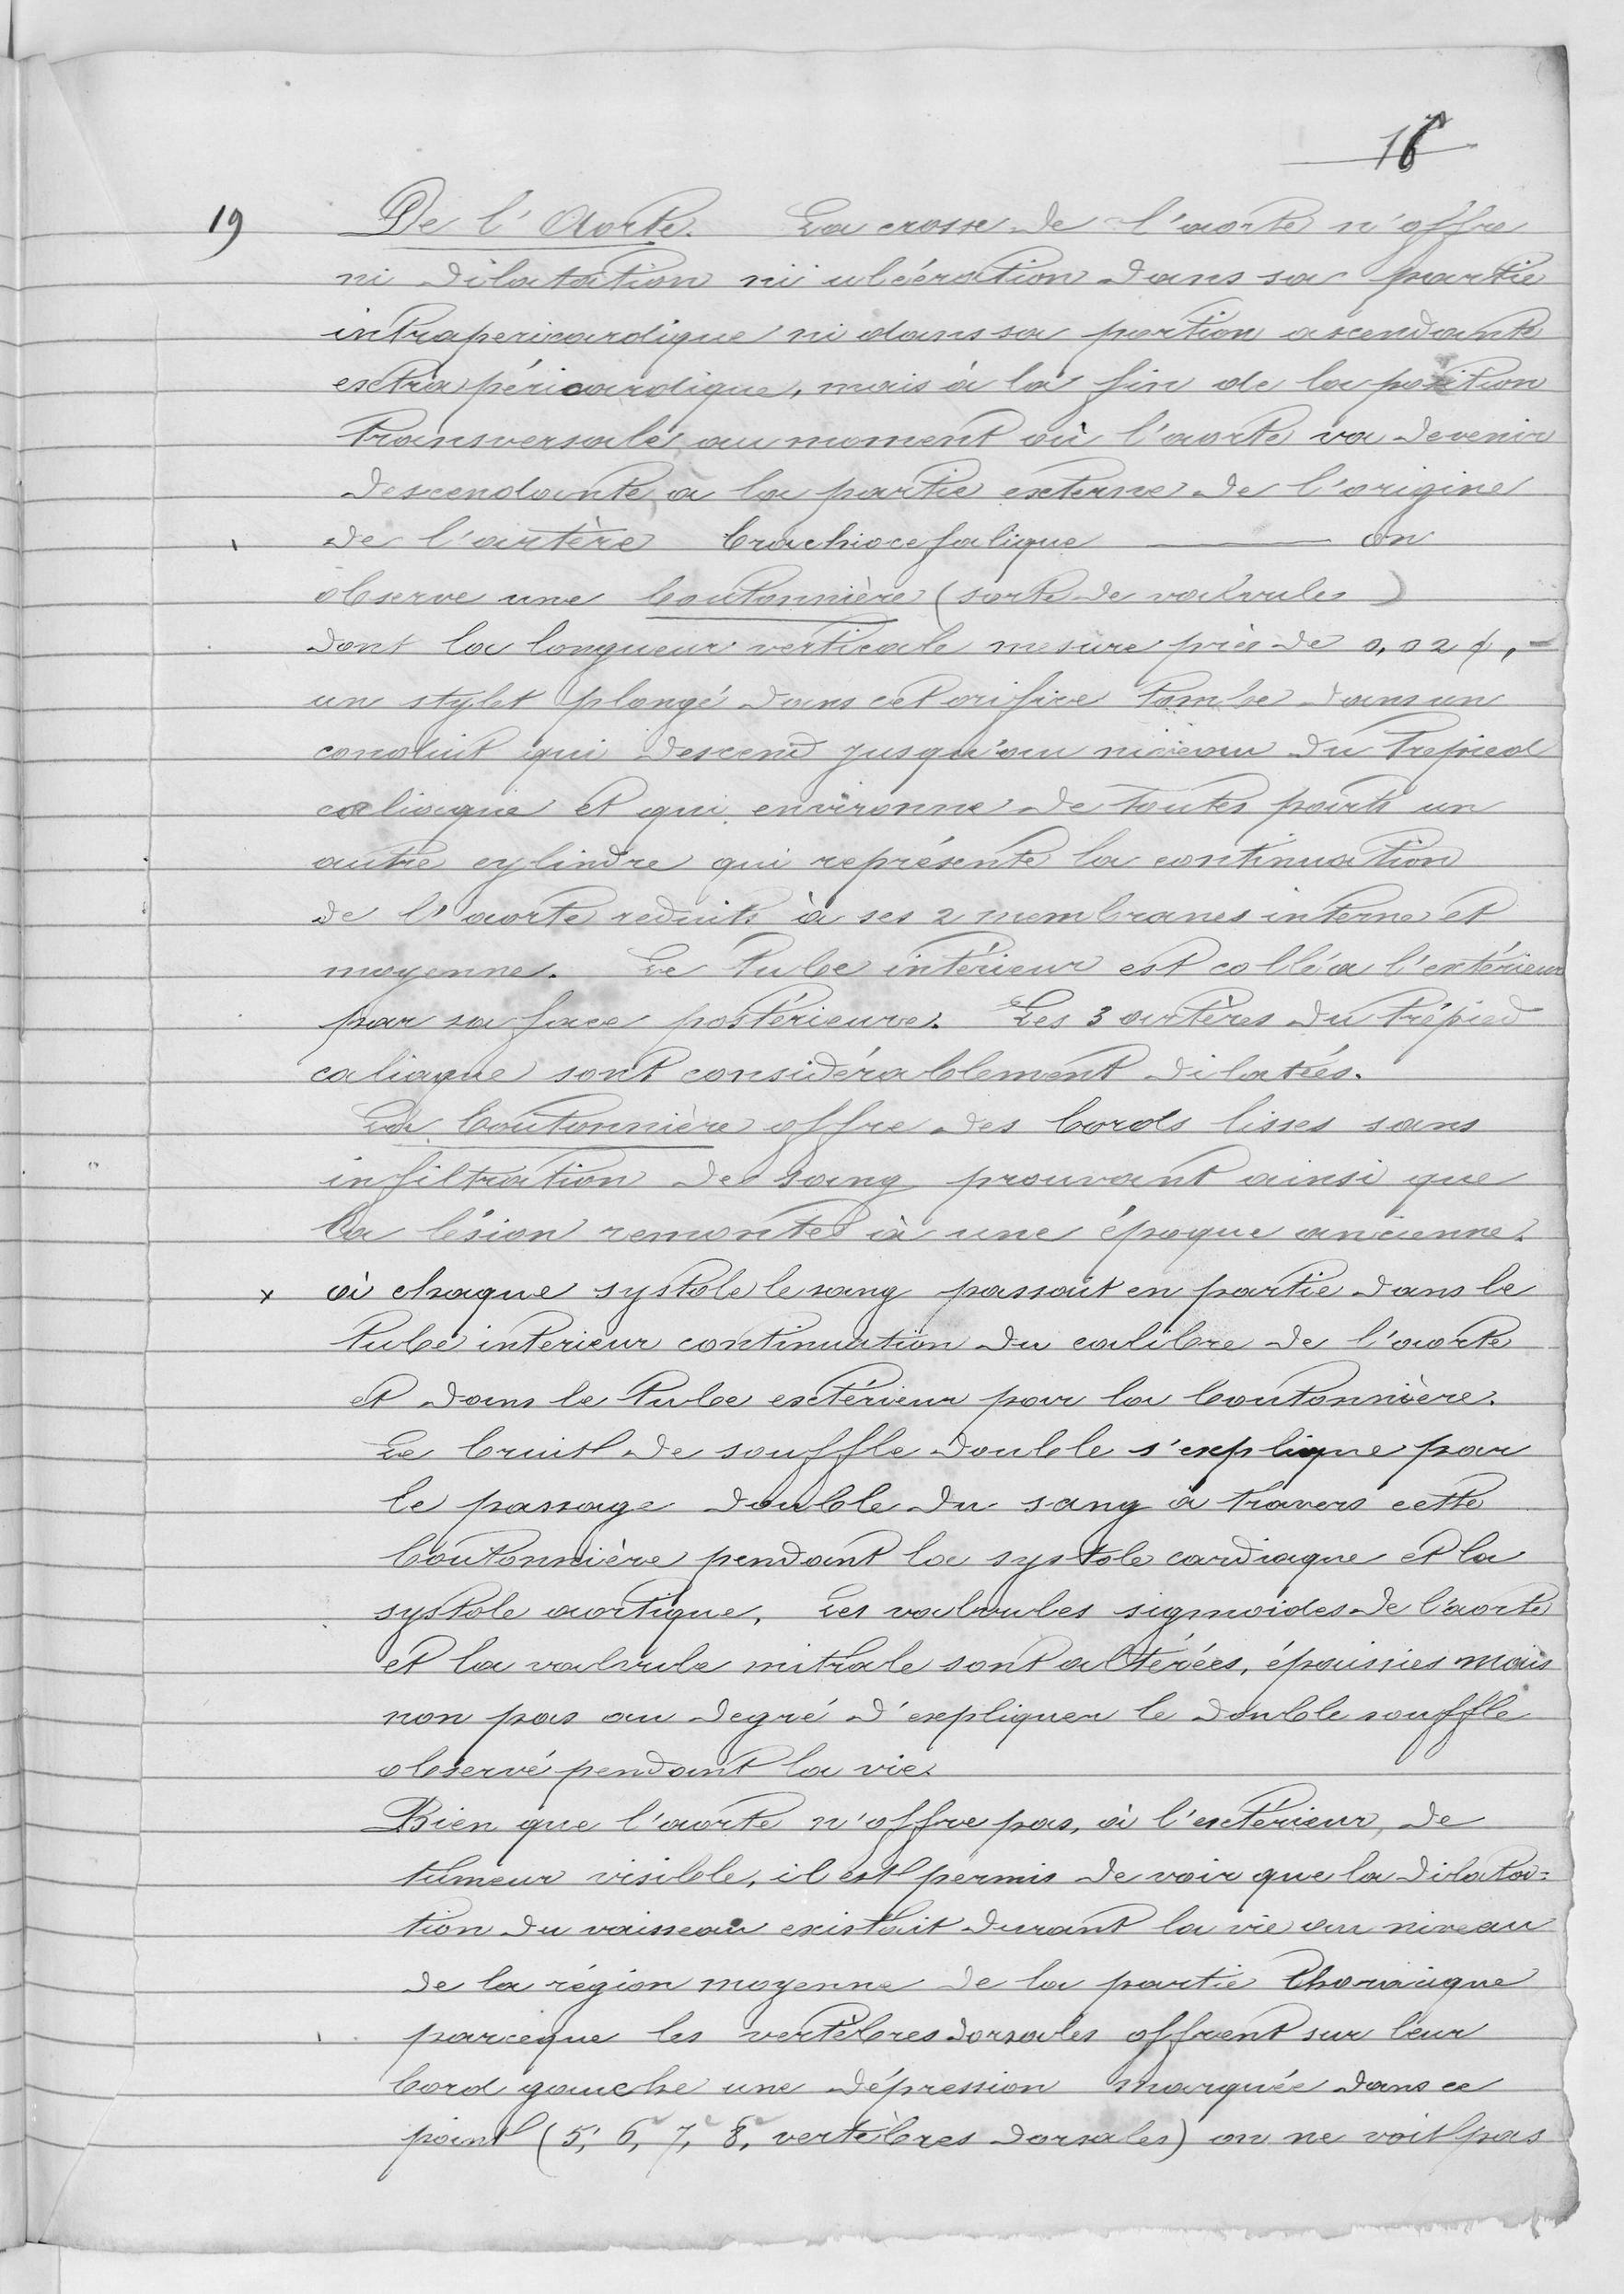 16
19
De l'Aorte. La crosse de l'aorte n'offre
ni dilatation ni ulcération dans sa partie
intrapericardique ni dans sa portion ascendante
extra péricardique, mais à la fin de la position
transversale au moment où l'aorte va devenir
descendante, à la partie externe de l'origine
de l'artère brachiocefalique ——— on
observe une boutonnière (sorte de valvules)
dont la longueur verticale mesure près de 0,02
un stylet plongé dans cet orifice tombe dans un
conduit qui descend jusqu'au niveau du Trepied
cœliaque et qui environne de toutes parts un
autre cylindre qui représente la continuation
de l'aorte reduite à ses 2 membranes interne et
moyenne. Le tube intérieur est collé à l'extérieur
par sa face postérieure. Les 3 artères du trépied
caliaque sont considérablement dilatées.
La boutonnière offre des bords lisses sans
infiltration de sang prouvant ainsi que
la lésion remonte à une époque ancienne.
x à chaque systole le sang passait en partie dans le
tube interieur continuation du calibre de l'aorte
et dans le tube extérieur par la boutonnière.
Le bruit de souffle double s'explique par
le passage double du sang à travers cette
boutonnière pendant la systole cardiaque et la
systole aortique. Les valvules sigmoides de l'aorte
et la valvule mitrale sont altérées, épaissies mais
non pas au degré d'expliquer le double souffle
observé pendant la vie.
Bien que l'aorte n'offre pas, à l'extérieur, de
tumeur visible, il est permis de voir que la dilata=
tion du vaisseau existait durant la vie au niveau
de la région moyenne de la partie thoracique
parceque les vertèbres dorsales offrent sur leur
bord gauche une dépression marquée dans ce
point (5, 6, 7, 8, vertèbres dorsales) on ne voit pas